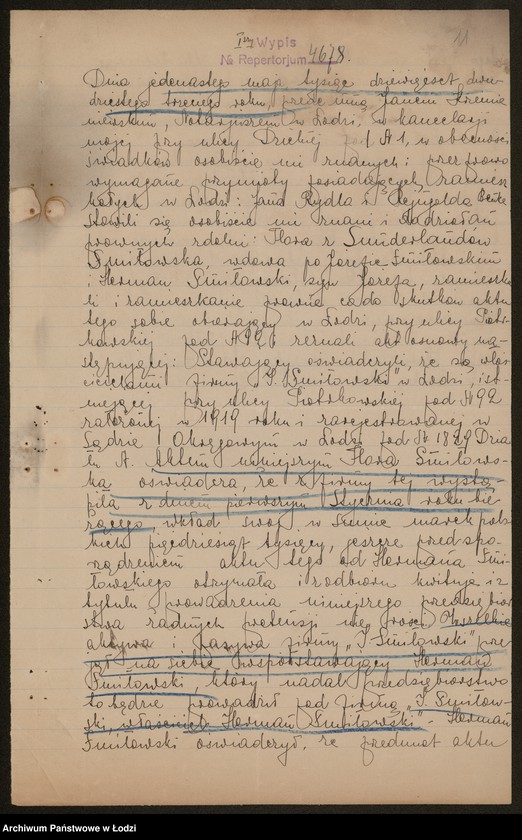 11
I-szy Wypis
№ Repertorjum 4678.
Dnia jedenastego maja tysiąc dziewięćset dwu-
dziestego trzeciego roku, przede mną Janem Krzemie
niewskim, Notarjuszem w Łodzi, w kancelarji
mojej przy ulicy Dzikiej pod № 1, w obecności
świadków osobiście mi znanych: przez prawo
wymagane przymioty posiadających, zamiesz
kałych w Łodzi: Jana Rydla i
stawili się osobiście mi znani i do działań
prawnych zdolni: Flora z Sunderlandów
Śmiłowska, wdowa po Józefie Śmiłowskim
i Herman Śmiłowski, syn Józefa, zamieszka
li i zamieszkanie prawne co do skutków aktu
tego sobie obierający w Łodzi, przy ulicy Piotr-
kowskiej pod № 92, zeznali akt osnowy na-
stępującej: Stawający oświadczyli, że są właś-
cicielami firmy "J. Śmiłowski" w Łodzi, ist-
niejącej przy ulicy Piotrkowskiej pod № 92
założonej w 1919 roku i zarejestrowanej w
Sądzie Okręgowym w Łodzi pod № 1829 Dzia
łu A. Aktem niniejszym Flora Śmiłows-
ka oświadcza, że z firmy tej wystą-
piła z dniem pierwszym stycznia roku bie-
żącego, wkład swój w sumie marek pols-
kich pięćdziesiąt tysięcy, jeszcze przed spo-
rządzeniem aktu tego od Hermana Śmi-
łowskiego otrzymała i z odbioru kwituje i z
tytułu prowadzenia niniejszego przedsiębior
stwa żadnych pretensji nie rości. Wszelkie
aktywa i pasywa firmy "J. Śmiłowski" prze-
jął na siebie współstawający Herman
Śmiłowski, który nadal przedsiębiorstwo
to będzie prowadził pod firmą "J. Śmiłow-
ski, właściciel Herman Śmiłowski" - Herman
Śmiłowski oświadczył, że przedmiot aktu
Archiwum Państwowe w Łodzi